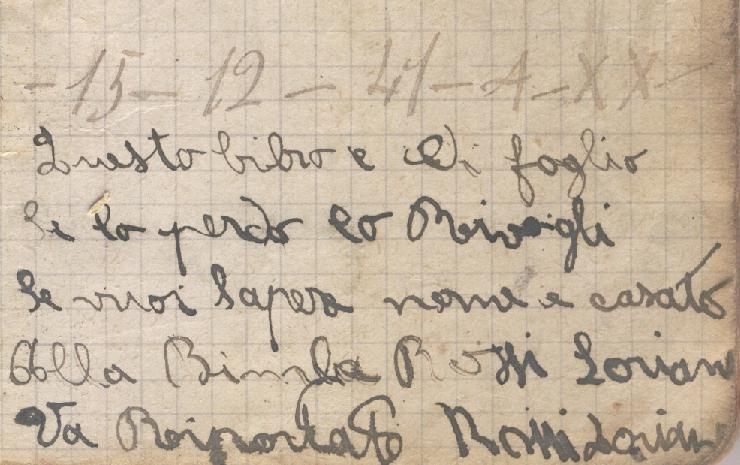 - 15 - 12 - 41 - A - XX -
Questo libro e di foglio
Se lo perdo lo Rivogli
Se vuoi Saper nome e casato
Alla Bimba Rossi Lorian
Va Riportato Rossi Lorian